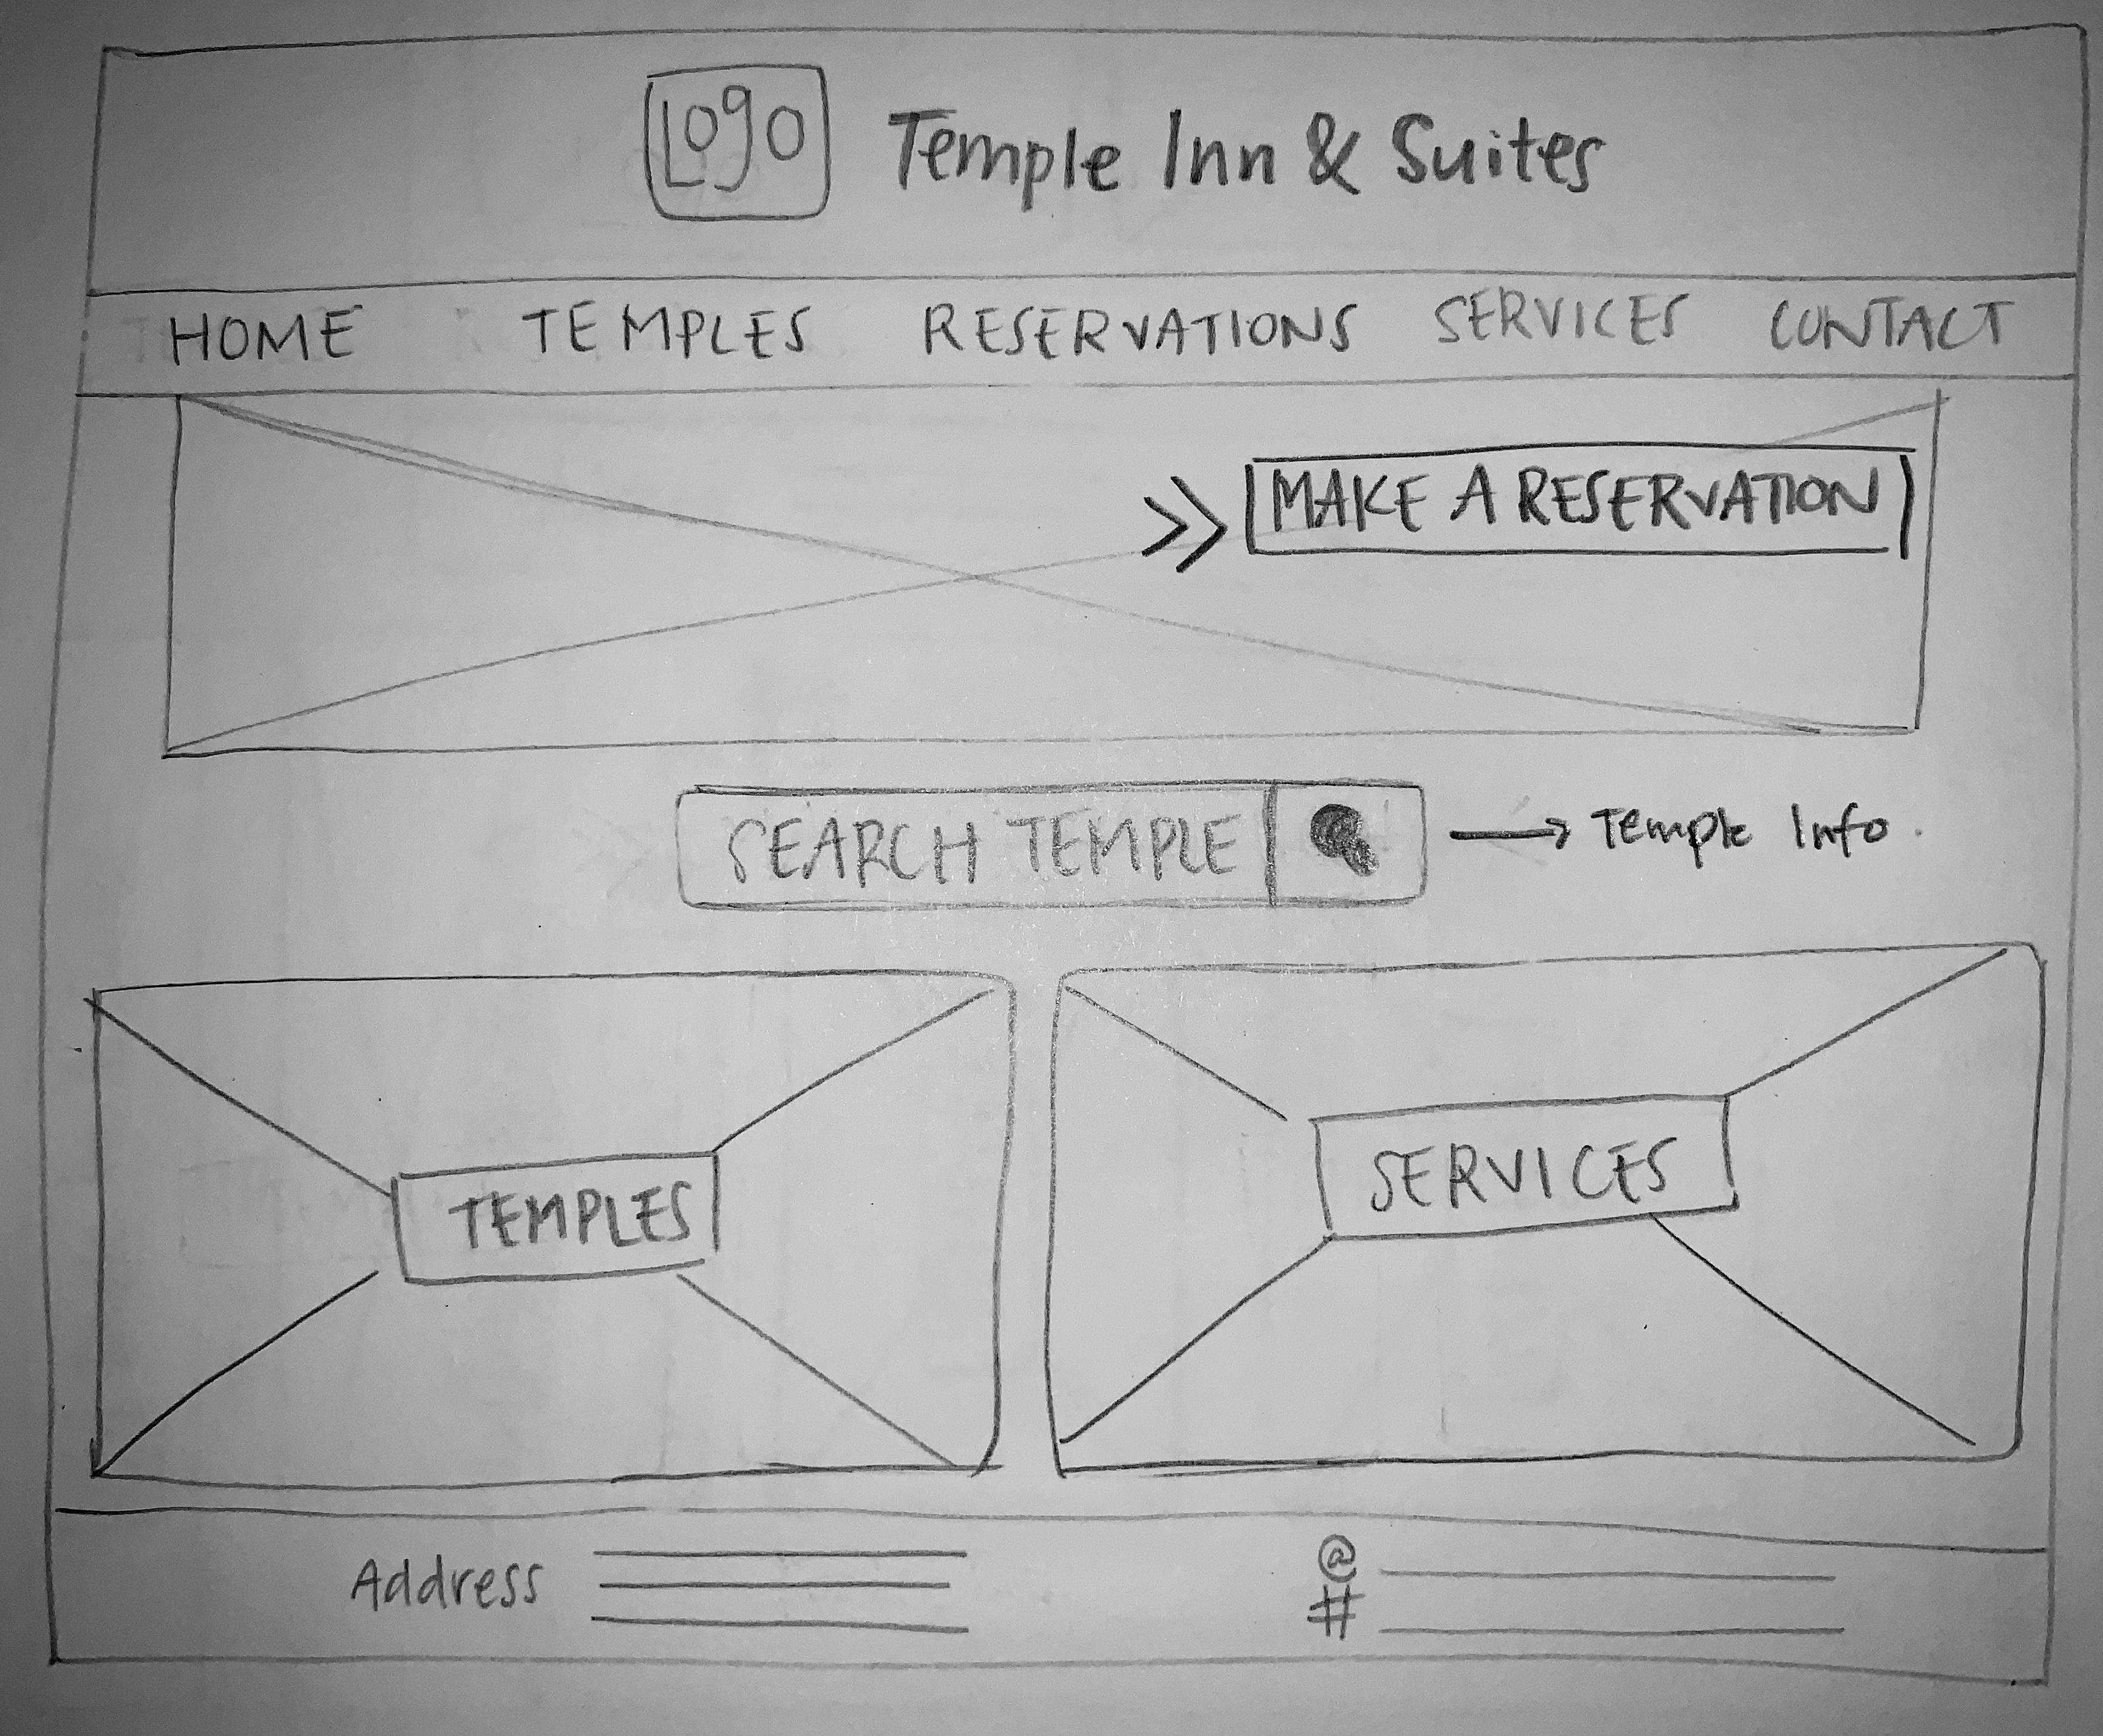 Logo Temple Inn & Suites
HOME TEMPLES RESERVATIONS SERVICES CONTACT
>> MAKE A RESERVATION
SEARCH TEMPLE → Temple Info.
TEMPLES SERVICES
Address @
#